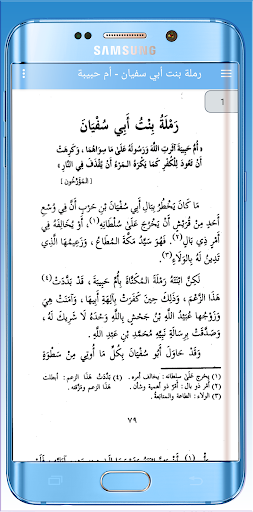 SAMSUNG
رملة بنت أبي سفيان - أم حبيبة
1
رَمْلَةُ بِنْتُ أَبِي سُفْيَانَ
« أُمُّ حَبِيبَةَ آثَرَتِ اللَّهَ وَرَسُولَهُ عَلَىٰ مَا سِوَاهُمَا ، وَكَرِهَتْ
أَنْ تَعُودَ لِلْكُفْرِ كَمَا يَكْرَهُ المَرْءُ أَنْ يُقْذَفَ فِي النَّارِ »
[ المُؤَرِّخُون ]
مَا كَانَ يَخْطُرُ بِبَالِ أَبِي سُفْيَانَ بْنِ حَرْبٍ أَنَّ فِي وُسْعِ
أَحَدٍ مِنْ قُرَيْشٍ أَنْ يَخْرُجَ عَلَىٰ سُلْطَانِهِ (١) ، أَوْ يُخَالِفَهُ فِي
أَمْرٍ ذِي بَالٍ (٢) . فَهُوَ سَيِّدُ مَكَّةَ المُطَاعُ ، وَزَعِيمُهَا الَّذِي
تَدِينُ لَهُ بِالْوَلَاءِ (٣) .
لَكِنَّ ابْنَتَهُ رَمْلَةَ المُكَنَّاةَ بِأُمِّ حَبِيبَةَ ، قَدْ بَدَّدَتْ (٤)
هَذَا الزَّعْمَ ، وَذَلِكَ حِينَ كَفَرَتْ بِآلِهَةِ أَبِيهَا ، وَآمَنَتْ هِيَ
وَزَوْجُهَا عُبَيْدُ اللَّهِ بْنُ جَحْشٍ بِاللَّهِ وَحْدَهُ لَا شَرِيكَ لَهُ ،
وَصَدَّقَتْ بِرِسَالَةِ نَبِيِّهِ مُحَمَّدِ بْنِ عَبْدِ اللَّهِ .
وَقَدْ حَاوَلَ أَبُو سُفْيَانَ بِكُلِّ مَا أُوتِيَ مِنْ سَطْوَةٍ
(١) يخرج عَلَىٰ سلطانه : يخالف أمره . (٤) بَدَّدَتْ هَذَا الزعم : أبطلت
(٢) أمر ذو بال : أَمْرٌ ذو أهمية وشأن . هَذَا الزعم ومَزَّقته .
(٣) الولاء : الطاعة والمتابعة .
٧٩